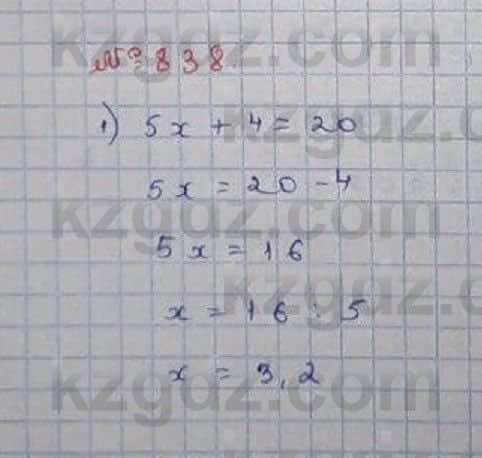 kzgdz.com
№838
1) 5x + 4 = 20
kzgdz.com
5x = 20 - 4
kzgdz.com
5x = 16
kzgdz.com
x = 16 : 5
x = 3,2
kzgdz.com